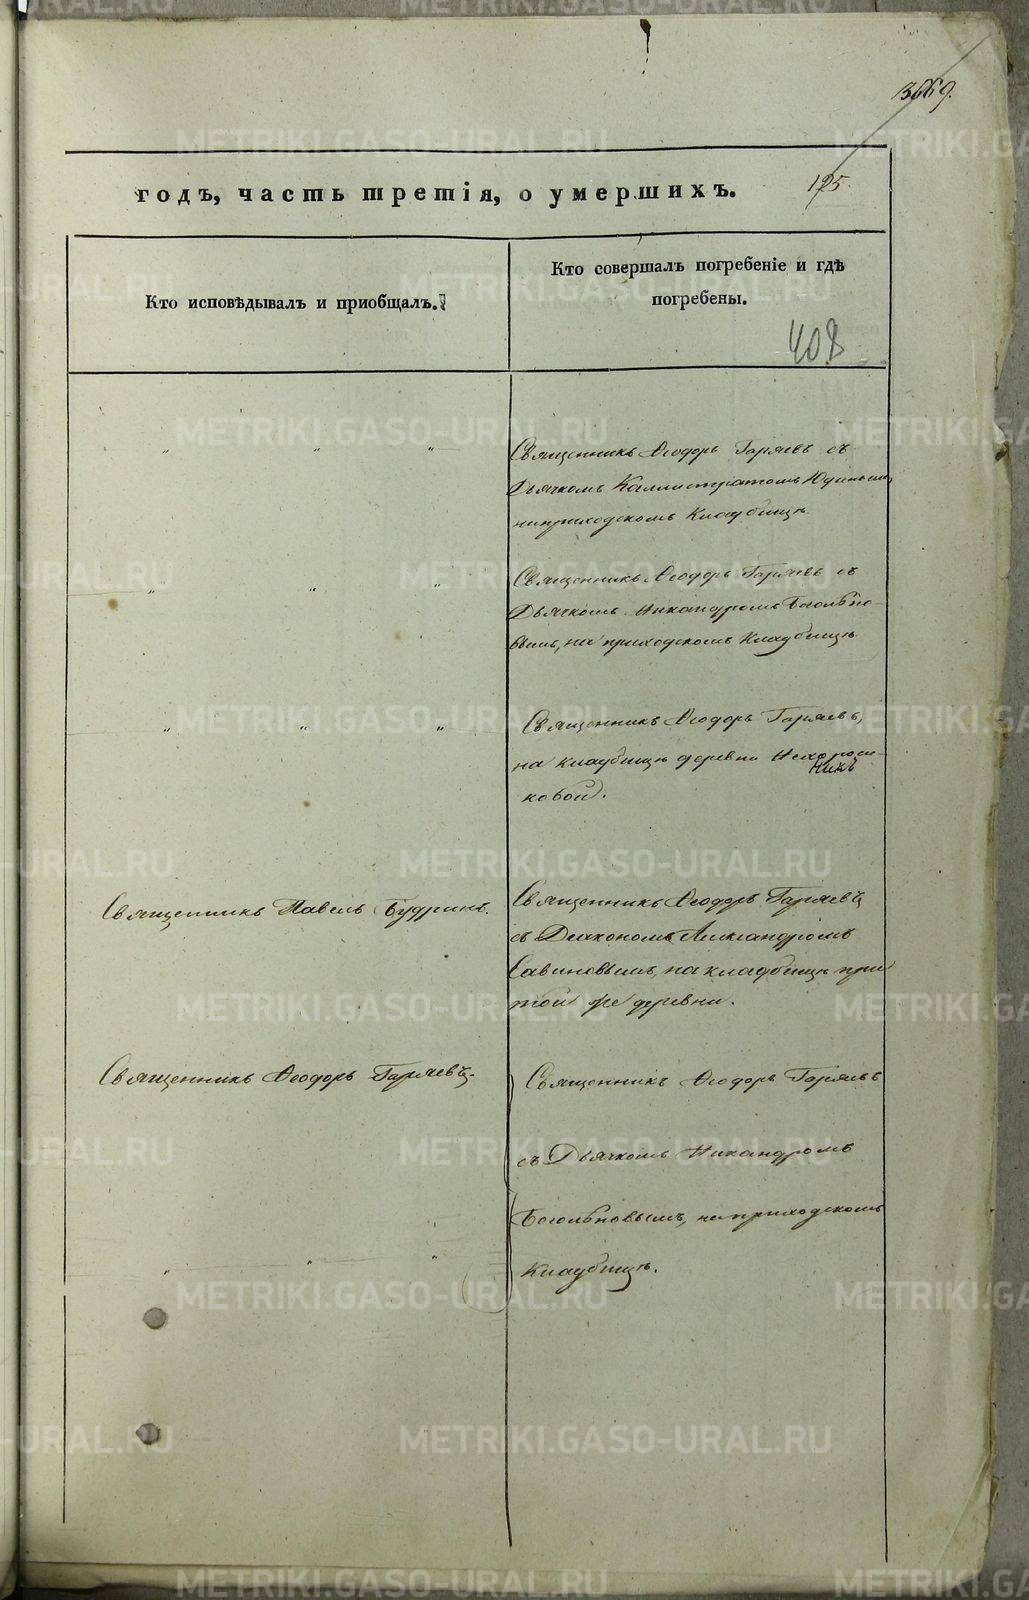 3669.
годъ, часть третія, о умершихъ.
125.
Кто исповѣдывалъ и приобщалъ.
Кто совершалъ погребеніе и гдѣ
погребены.
408
" " "
Священникъ Ѳеодоръ Гаряевъ съ
Дьячкомъ Каллистратомъ Юдинымъ,
на приходскомъ Кладбищѣ.
" " "
Священникъ Ѳеодоръ Гаряевъ съ
Дьячкомъ Никандромъ Боголѣпо-
вымъ, на приходскомъ Кладбищѣ
" " "
Священникъ Ѳеодоръ Гаряевъ,
на кладбищѣ деревни
никъ
ковой.
Священникъ Павелъ Будринъ.
Священникъ Ѳеодоръ Гаряевъ
съ Діакономъ Александромъ
Савиновымъ, на кладбищѣ при
той же деревни.
Священникъ Ѳеодоръ Гаряевъ.
Священникъ Ѳеодоръ Гаряевъ
съ Дьячкомъ Никандромъ
Боголѣповымъ, на приходскомъ
" " "
Кладбищѣ.
METRIKI.GASO-URAL.RU